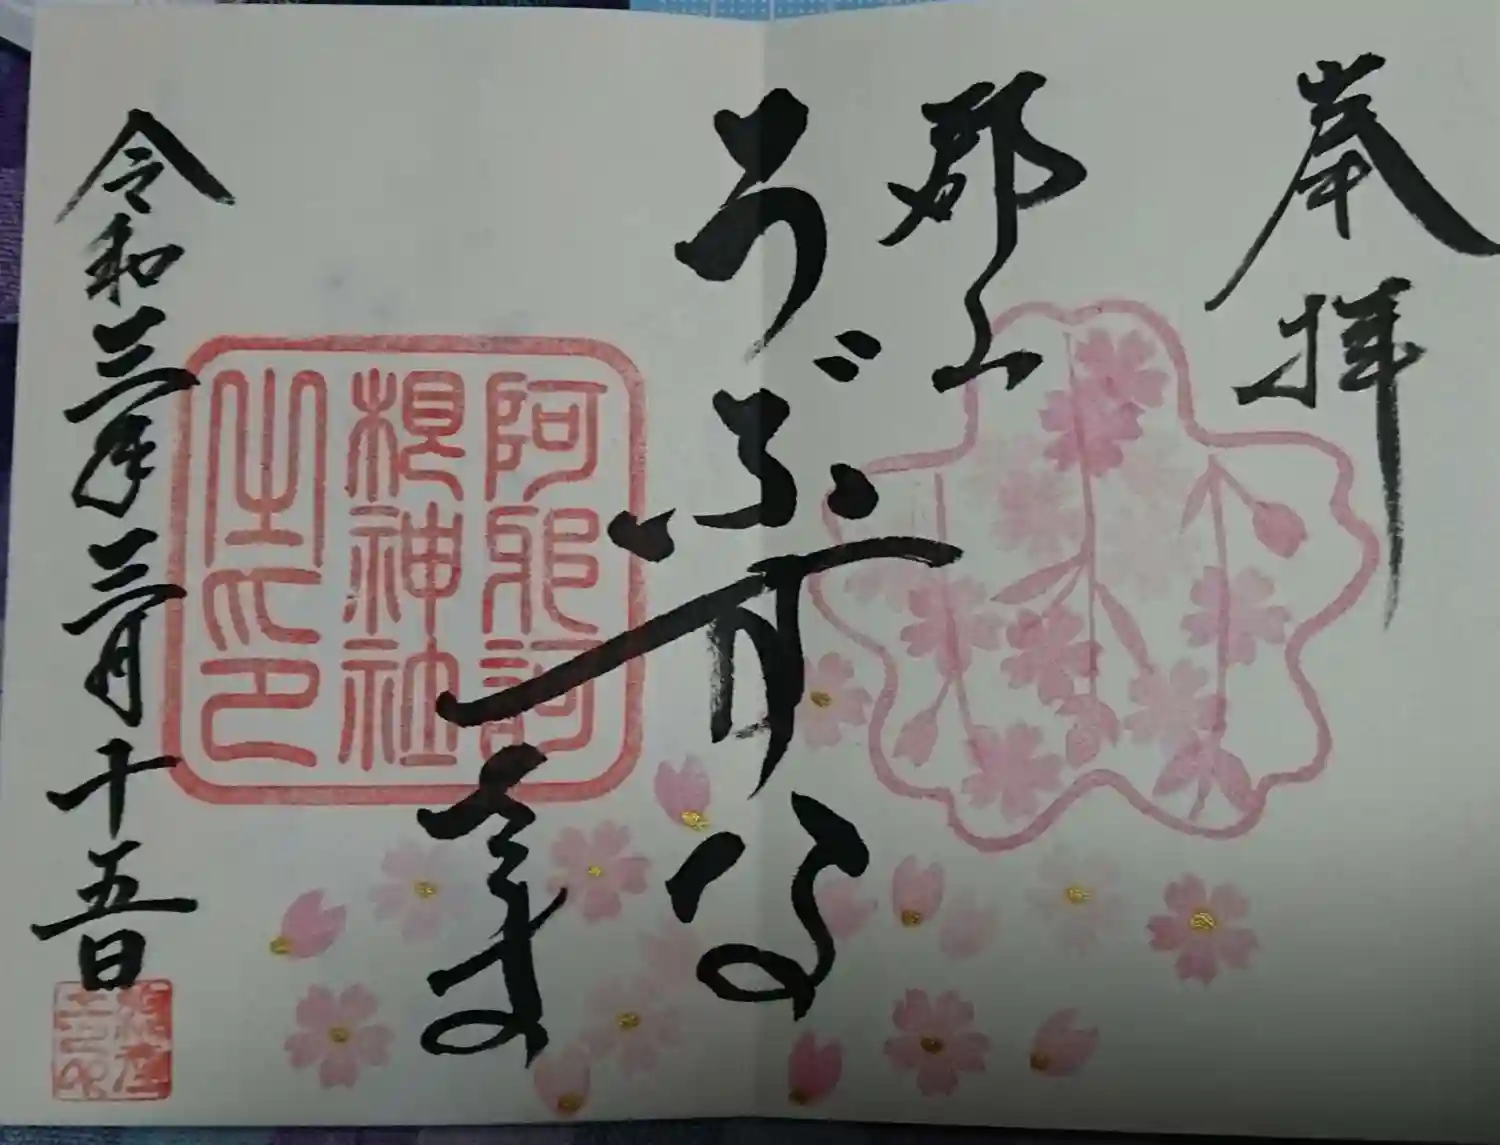 奉拝
郡山
うぶすな
さま
阿邪訶
根神社
之印
令和三年三月十五日